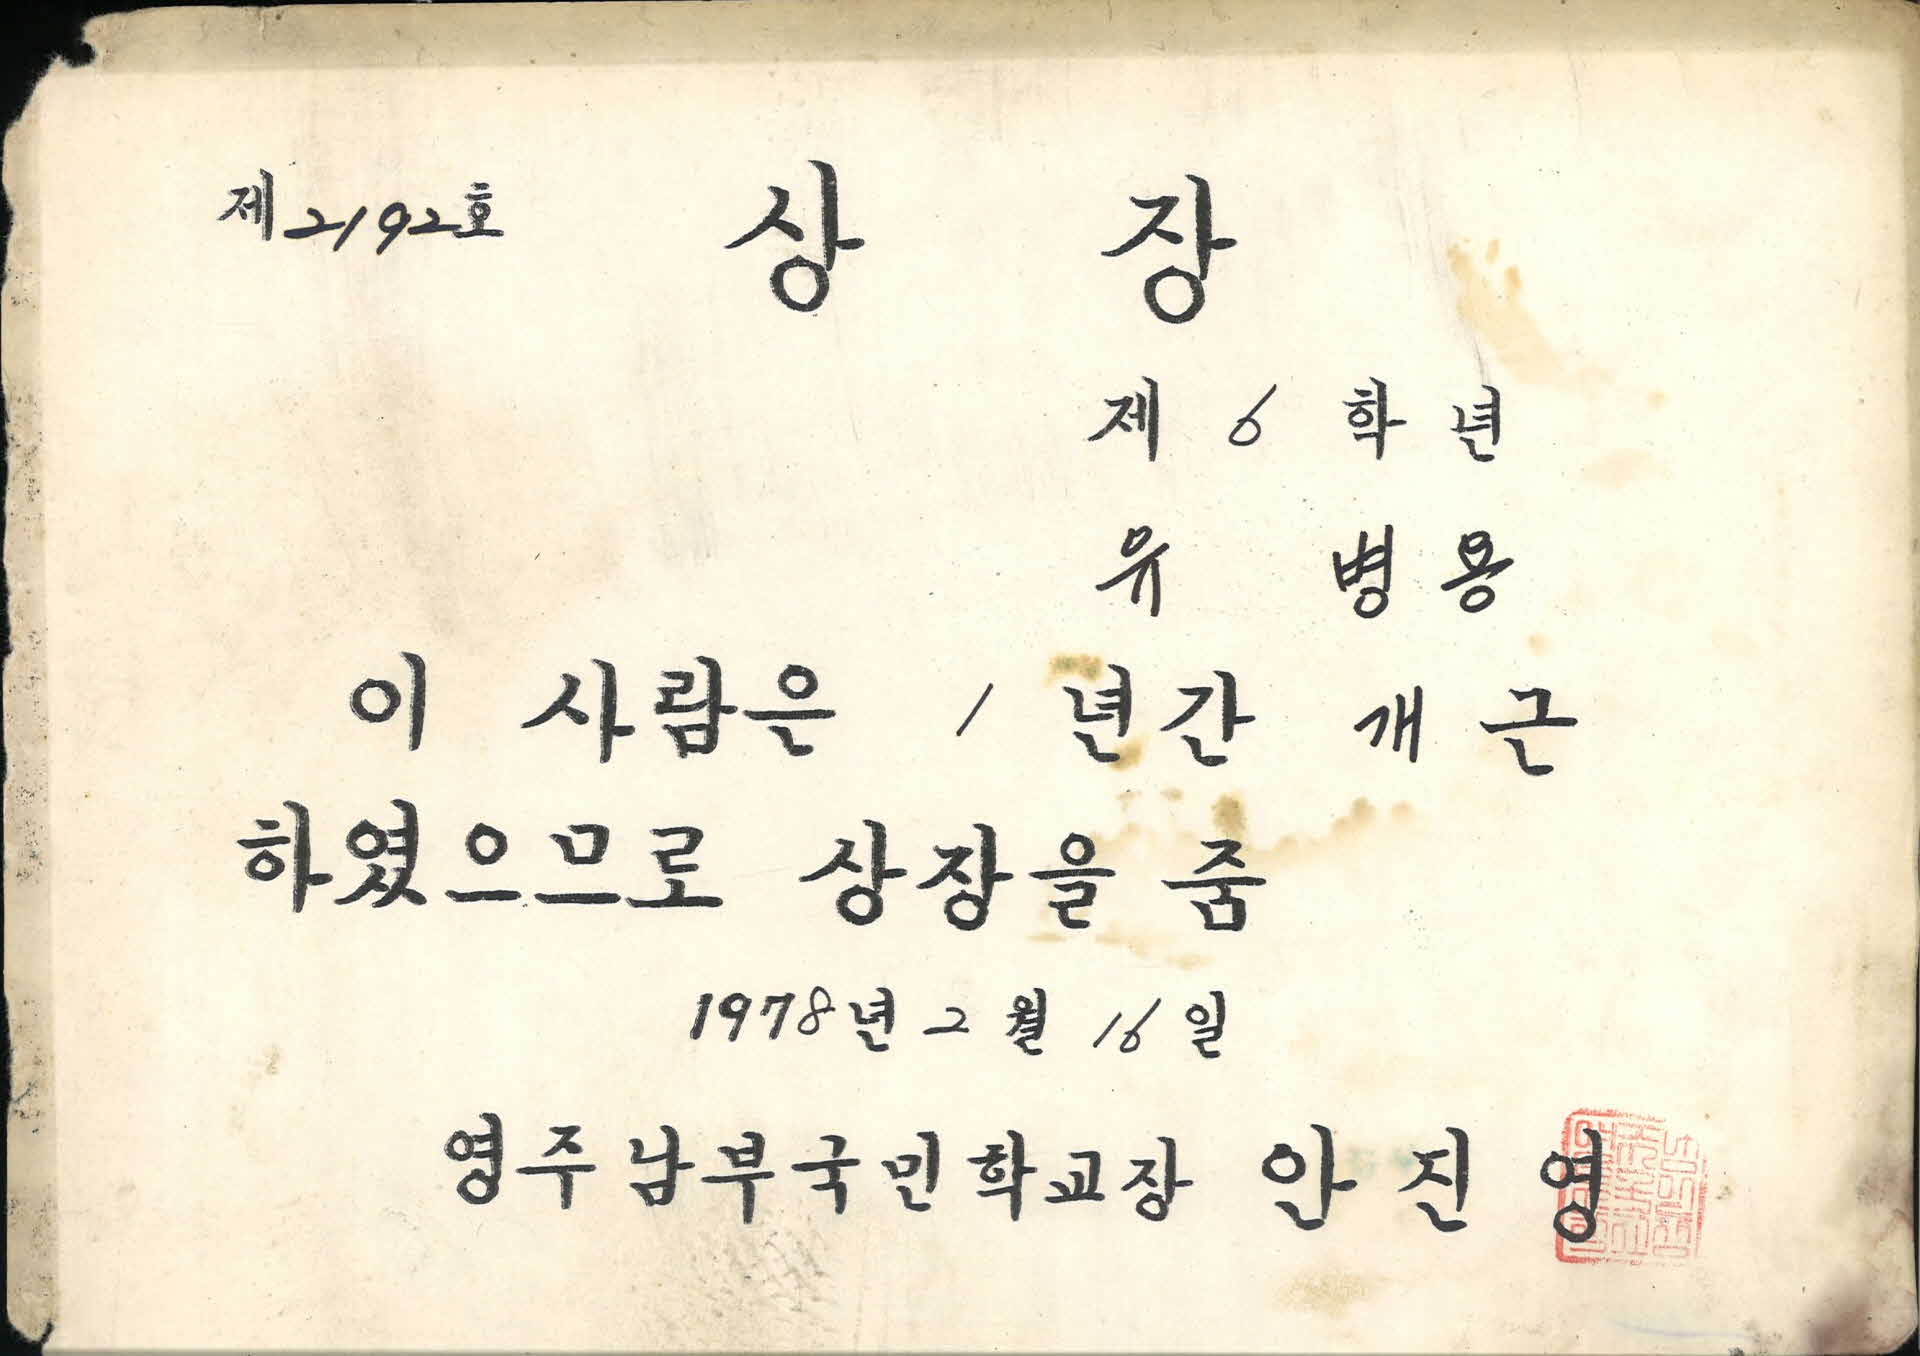 제2192호
상 장
제 6 학년
유 병용
이 사람은 1 년간 개근
하였으므로 상장을 줌
1978년 2 월 16 일
영주남부국민학교장 안 진 영